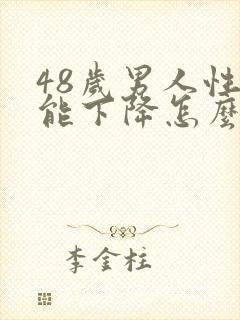 48歲男人性
能下降怎麼
李金柱